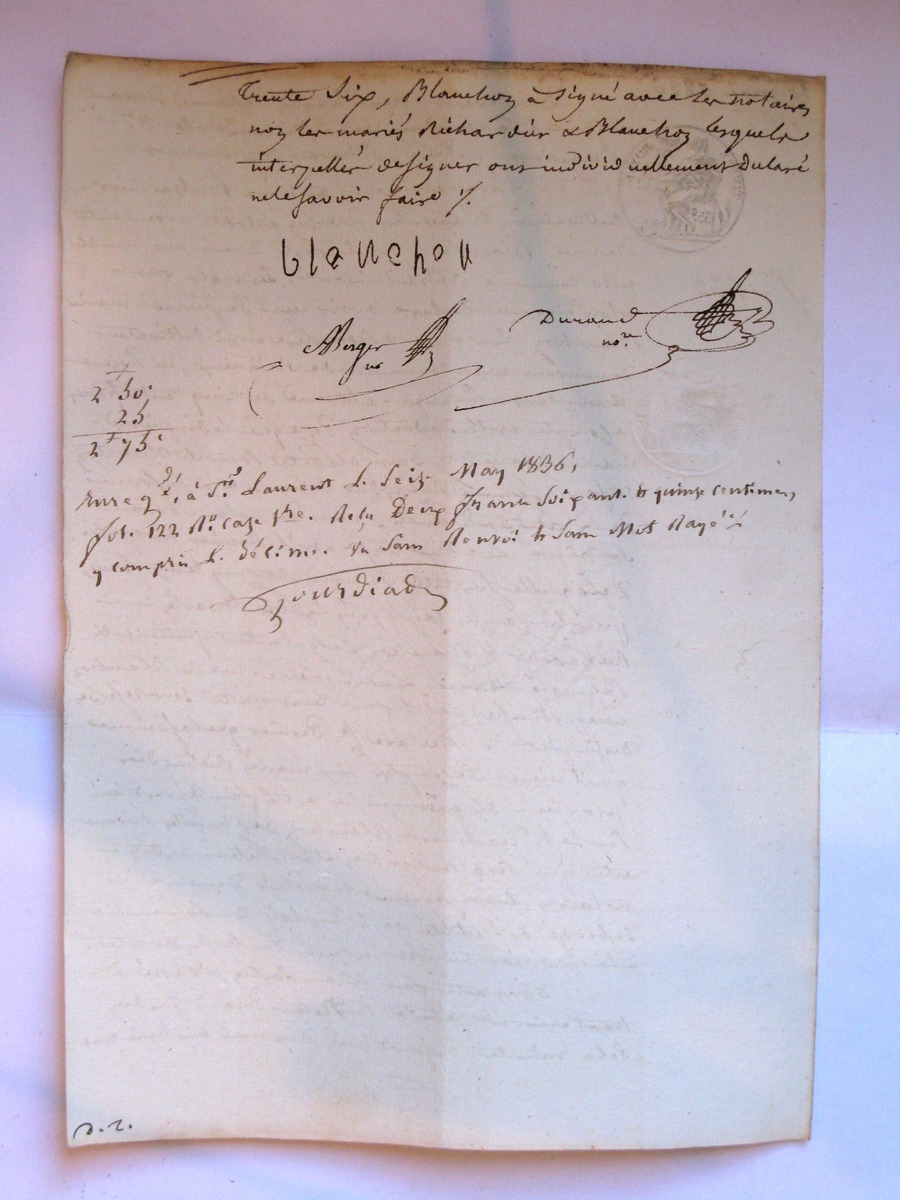 trente Six, Blanchon à Signé avec les notaires
non les mariés Richardier & Blanchon lesquels
interpellés designer ont individuellement Déclaré
nele Savoir faire ./.
blanchon
Durand
no.re
ABerger
no
2 f 50 c
25
2 f 75 c
Enregé, à St Laurent Le Seize May 1836,
fol. 122 Ro. Case 1re. Reçu Deux francs Soixante & quinze centimes,
y compris le Décime. Sans Renvoi & Sans Mot Rayé ./.
Gourdiad